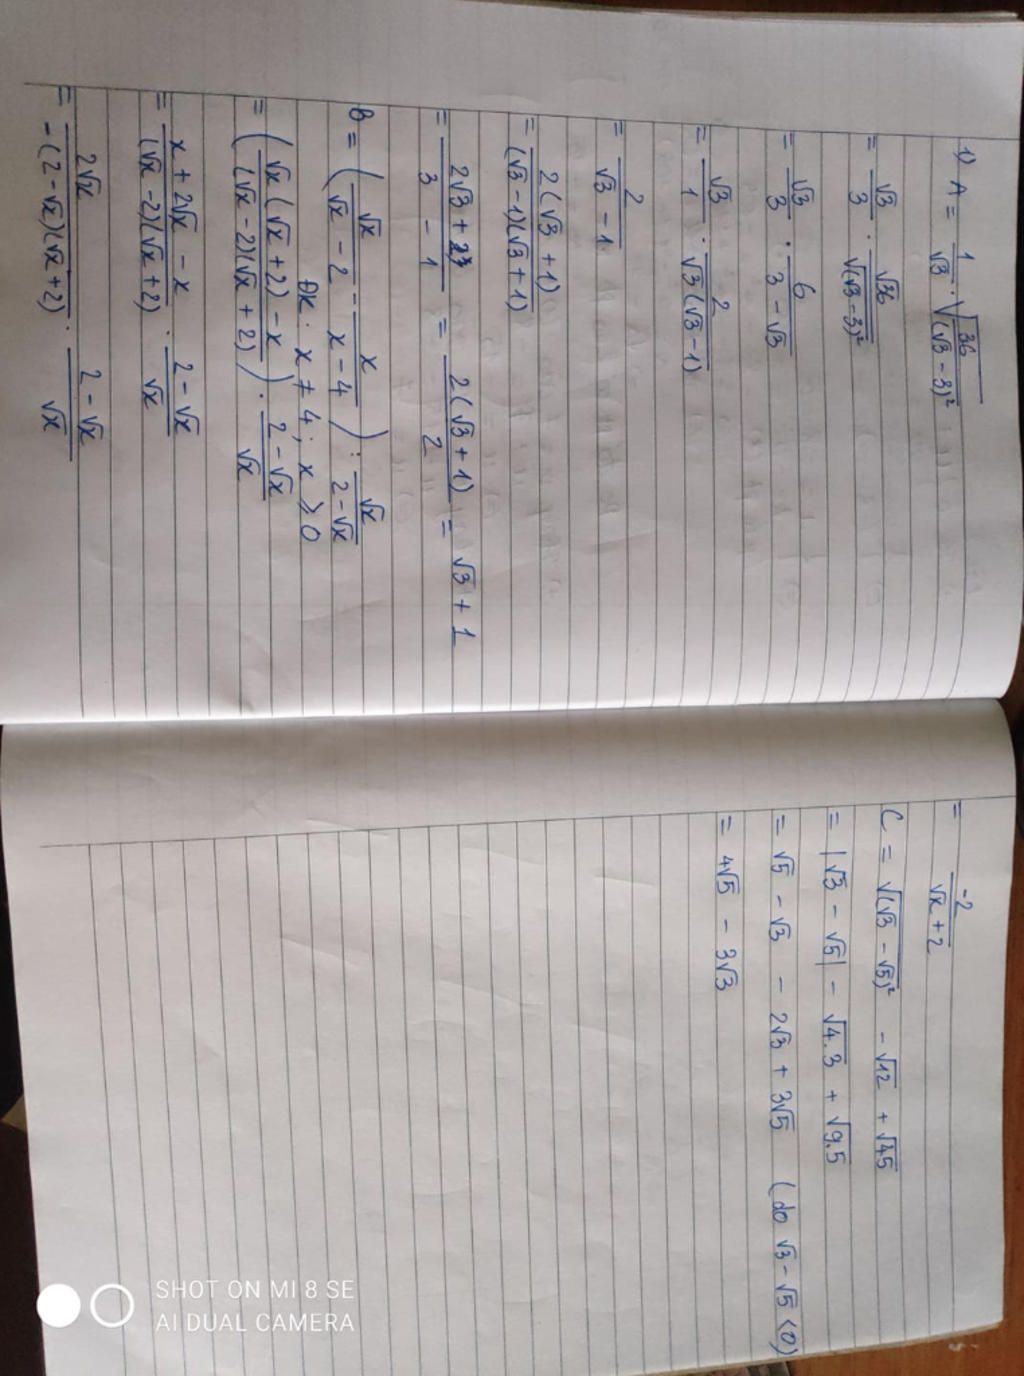 1) A = 1/√3 . √(36/(√3 - 3)²)
= √3/3 . √36/√(√3 - 3)²
= √3/3 . 6/(3 - √3)
= √3/1 . 2/(√3(√3 - 1))
= 2/(√3 - 1)
= 2(√3 + 1)/((√3 - 1)(√3 + 1))
= (2√3 + 2)/(3 - 1) = 2(√3 + 1)/2 = √3 + 1
B = (√x/(√x - 2) - x/(x - 4)) : √x/(2 - √x)
ĐK . x ≠ 4 ; x ⩾ 0
= ((√x(√x + 2) - x)/((√x - 2)(√x + 2))) . (2 - √x)/√x
= (x + 2√x - x)/((√x - 2)(√x + 2)) . (2 - √x)/√x
= 2√x/(-(2 - √x)(√x + 2)) . (2 - √x)/√x
= -2/(√x + 2)
C = √(√3 - √5)² - √12 + √45
= |√3 - √5| - √4.3 + √9.5
= √5 - √3 - 2√3 + 3√5 (do √3 - √5 < 0)
= 4√5 - 3√3
SHOT ON MI 8 SE
AI DUAL CAMERA